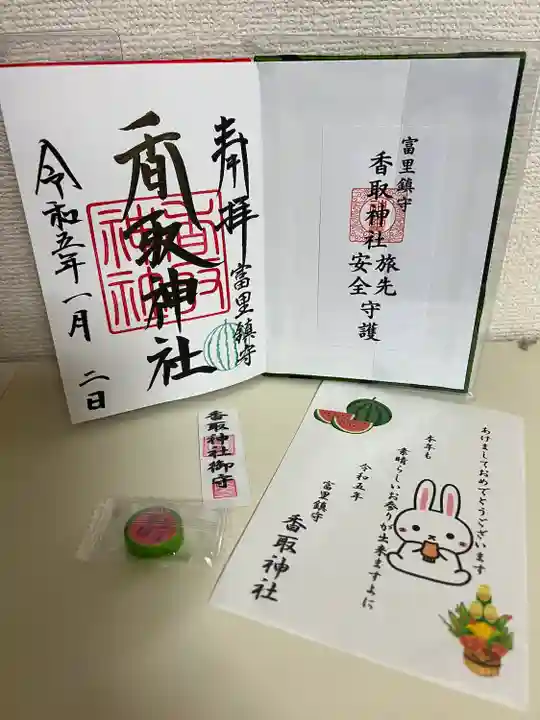 奉拝
富里鎮守
香取神社
香取神社
令和五年一月二日
富里鎮守
香取神社旅先
安全守護
香取神社御守
あけましておめでとうございます
本年も
素晴らしいお参りが出来ますように
令和五年
富里鎮守
香取神社